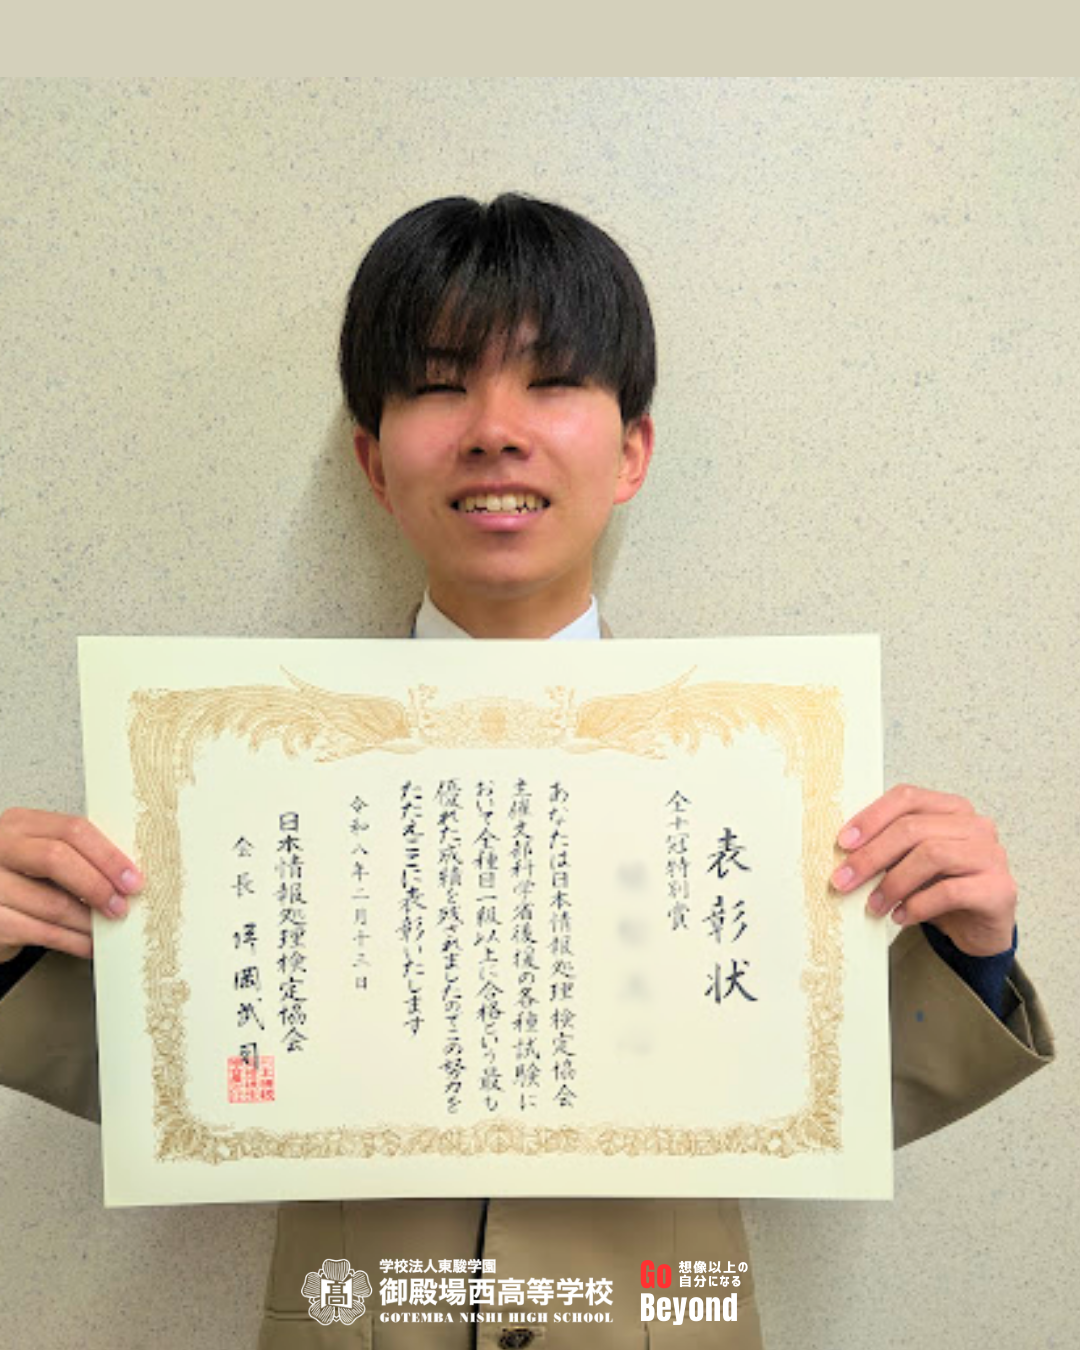 表彰状
全十冠特別賞
あなたは日本情報処理検定協会
主催文部科学省後援の各種試験に
おいて全種目一級以上に合格という最も
優れた成績を残されましたのでこの努力を
たたえここに表彰いたします
令和八年二月十三日
日本情報処理検定協会
会長 岡武司
学校法人東駿学園
御殿場西高等学校
GOTEMBA NISHI HIGH SCHOOL
Go 想像以上の
自分になる
Beyond